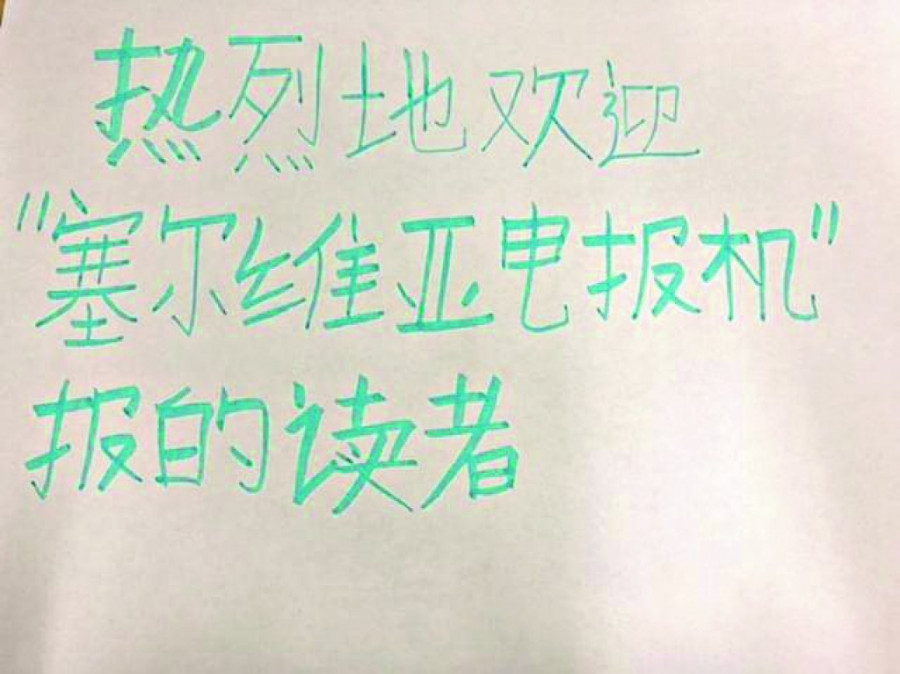 热烈地欢迎
"塞尔维亚电报机"
报的读者